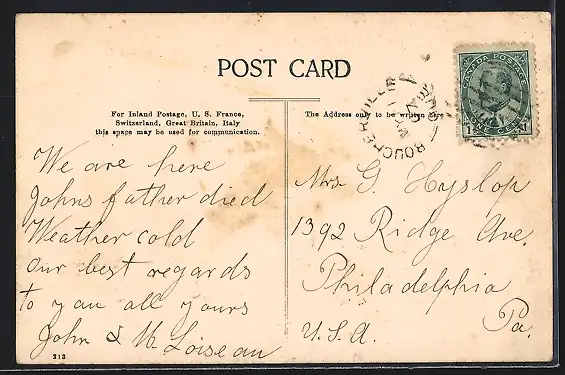 POST CARD
For Inland Postage, U. S. France,
Switzerland, Great Britain, Italy
this space may be used for communication.
The Address only to be written here
BOUCHERVILLE
CANADA POSTAGE
1 ONE CENT 1
We are here
Johns father died
Weather cold
Our best regards
to you all yours
John & M. Loiseau
213
Mrs G. Hyslop
1392 Ridge Ave.
Philadelphia
Pa.
U.S.A.